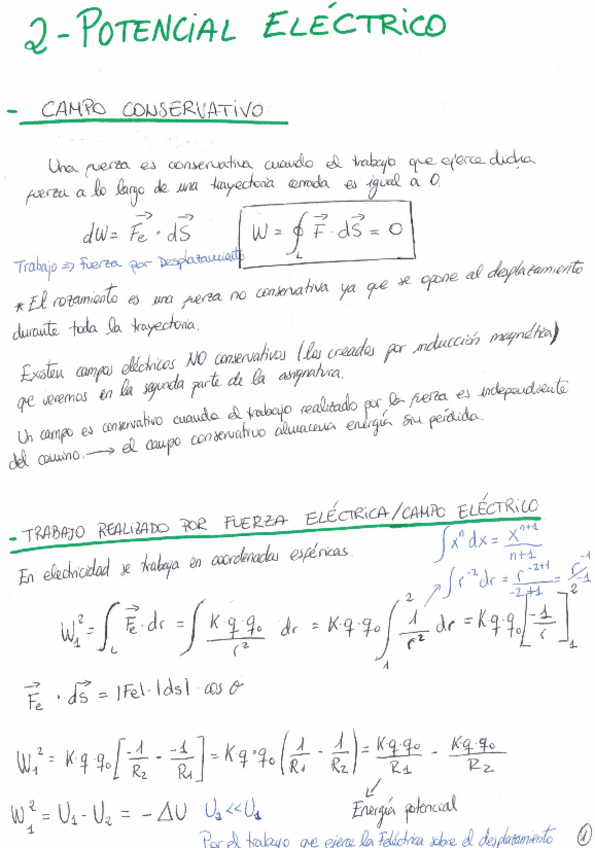 2-POTENCIAL ELÉCTRICO
- CAMPO CONSERVATIVO
Una fuerza es conservativa cuando el trabajo que ejerce dicha
fuerza a lo largo de una trayectoria cerrada es igual a 0.
dW = F⃗e · dS⃗   W = ∮_L F⃗ · dS⃗ = 0
Trabajo ⇒ Fuerza por Desplazamiento
* El rozamiento es una fuerza no conservativa ya que se opone al desplazamiento
durante toda la trayectoria.
Existen campos eléctricos NO conservativos (los creados por inducción magnética)
que veremos en la segunda parte de la asignatura.
Un campo es conservativo cuando el trabajo realizado por la fuerza es independiente
del camino. → el campo conservativo almacena energía sin perdida.
- TRABAJO REALIZADO POR FUERZA ELÉCTRICA/CAMPO ELÉCTRICO
∫xⁿdx = xⁿ⁺¹/n+1
En electricidad se trabaja en coordenadas esféricas.
∫r⁻²dr = r⁻²⁺¹/-2+1 = r⁻¹/-1
W₁² = ∫_L F⃗e · dr = ∫ K·q·q₀/r² dr = K·q·q₀ ∫₁² 1/r² dr = K·q·q₀ [-1/r]₁²
F⃗e · dS⃗ = |Fe|·|ds|· cos θ
W₁² = K·q·q₀ [-1/R₂ - -1/R₁] = K·q·q₀ (1/R₁ - 1/R₂) = K·q·q₀/R₁ - K·q·q₀/R₂
Energía potencial
W₁² = U₁ - U₂ = -ΔU   U₂<<U₁
Por el trabajo que ejerce la Feléctrica sobre el desplazamiento
1